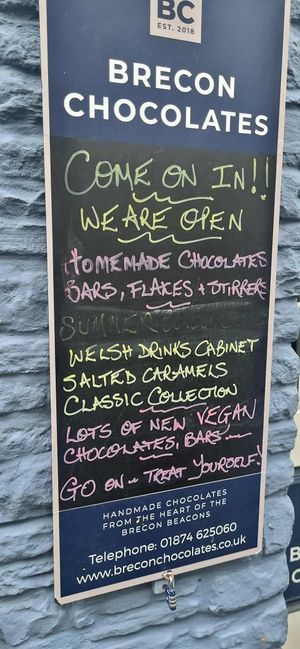 BC
EST. 2018
BRECON
CHOCOLATES
COME ON IN!!
WE ARE OPEN
HOMEMADE CHOCOLATES
BARS, FLAKES + STIRRERS
SUMMER
WELSH DRINKS CABINET
SALTED CARAMELS
CLASSIC COLLECTION
LOTS OF NEW VEGAN
CHOCOLATES, BARS~
GO ON~ TREAT YOURSELF!
HANDMADE CHOCOLATES
FROM THE HEART OF THE
BRECON BEACONS
Telephone: 01874 625060
www.breconchocolates.co.uk